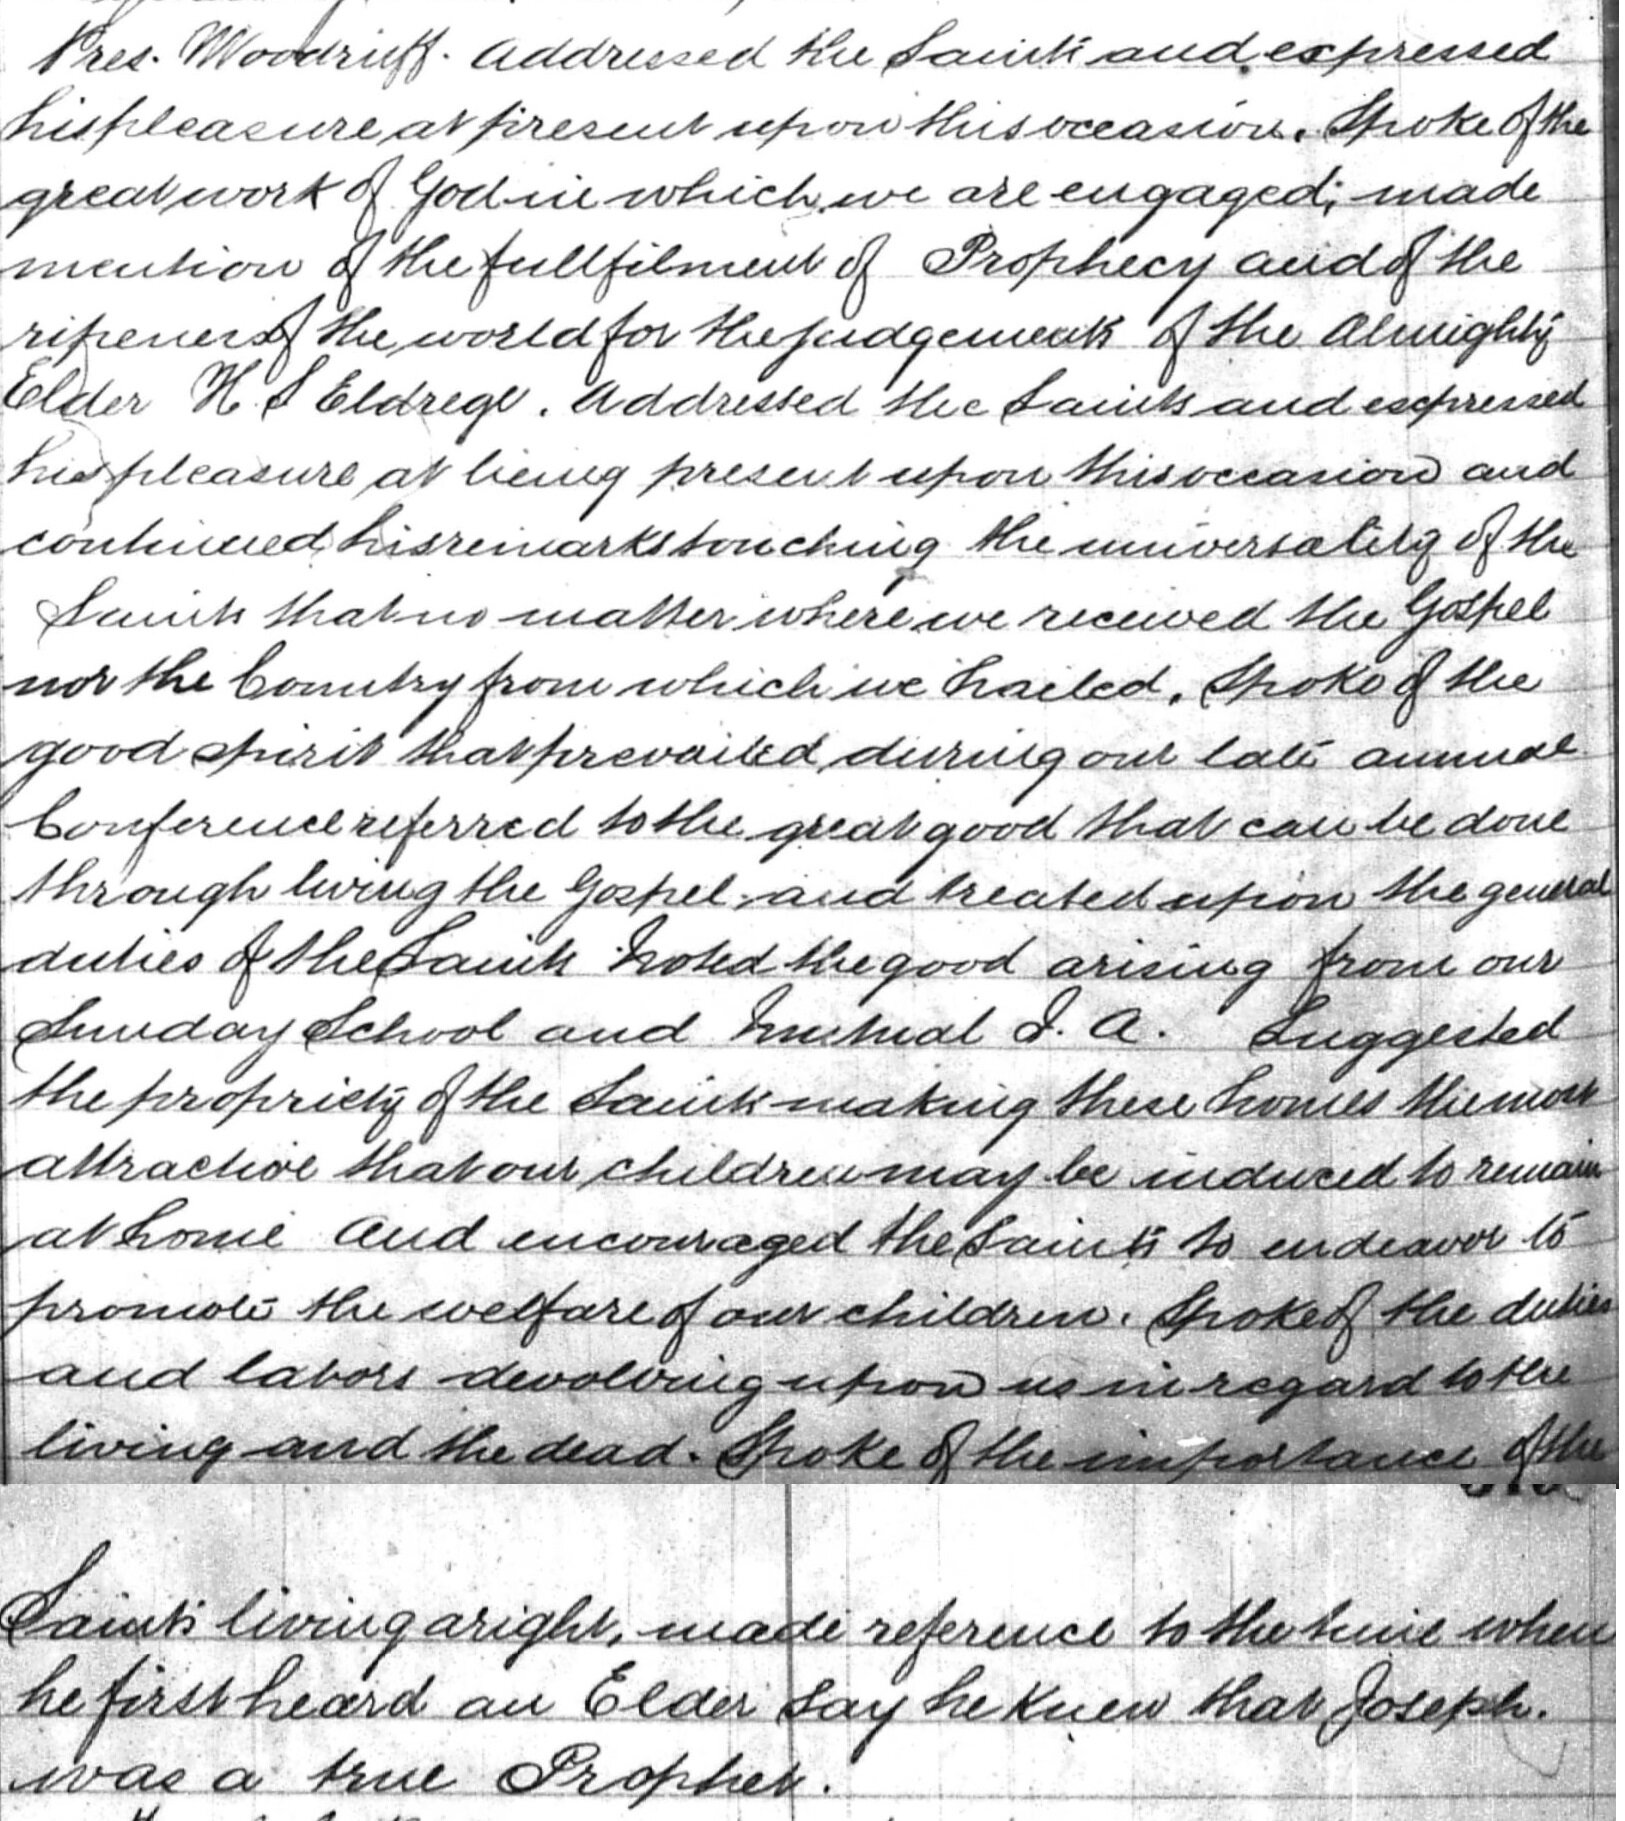 Pres. Woodruff. Addressed the Saints and expressed
his pleasure at present upon this occasion. Spoke of the
great work of God in which we are engaged; made
mention of the fullfilment of Prophecy and of the
ripeness of the world for the judgements of the Almighty
Elder H. S Eldrege. Addressed the Saints and expressed
his pleasure at being present upon this occasion and
continued his remarks touching the universality of the
Saints that no matter where we received the Gospel
nor the Country from which we hailed. Spoke of the
good spirit that prevailed during our late annual
Conference referred to the great good that can be done
through living the Gospel and treated upon the general
duties of the Saints Noted the good arising from our
Sunday School and Mutual I. A. Suggested
the propriety of the Saints making these homes the most
attractive that our children may be induced to remain
at home And encouraged the Saints to endeavor to
promote the welfare of our children. Spoke of the duties
and labors devolving upon us in regard to the
living and the dead. Spoke of the importance of the
Saints living aright, made reference to the time when
he first heard an Elder say he knew that Joseph.
was a true Prophet.